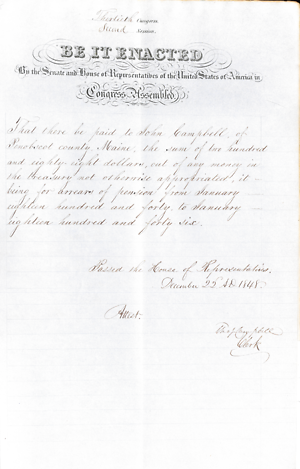 Thirtieth Congress
Second Session.
BE IT ENACTED
By the Senate and House of Representatives of the United States of America in
Congress Assembled,
That there be paid to John Campbell, of
Penobscot county, Maine, the sum of two hundred
and eighty eight dollars, out of any money in
the treasury not otherwise appropriated, it
being for arrears of pension from January
eighteen hundred and forty, to January
eighteen hundred and forty six.
Passed the House of Representatives,
December 22d 1848.
Attest:
Clerk